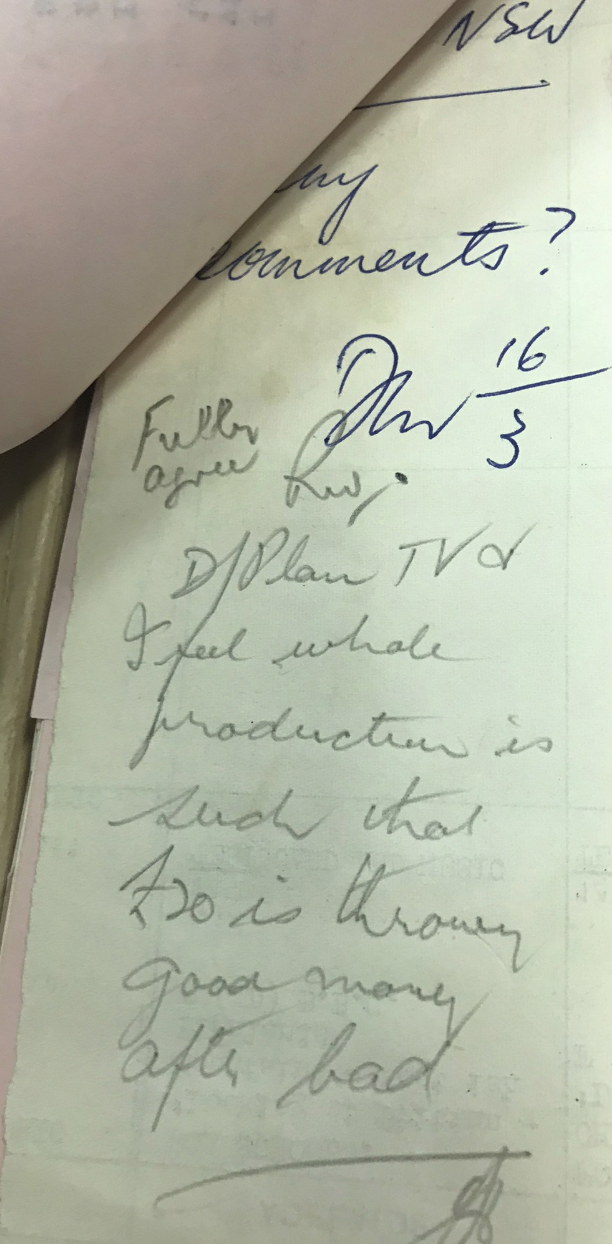 NSW
comments?
16
3
Fully
agree
D/Plan TV
I feel whole
production is
such that
£20 is throwing
good money
after bad